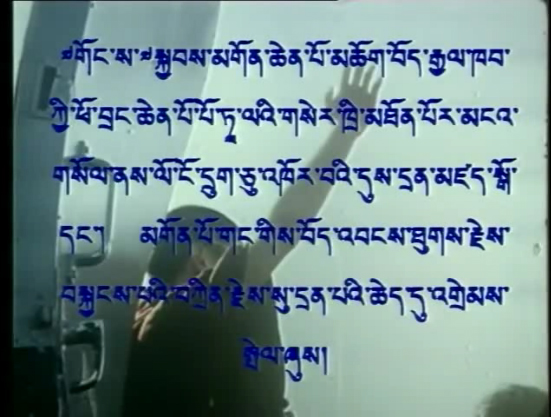 ༧གོང་ས་༧སྐྱབས་མགོན་ཆེན་པོ་མཆོག་བོད་རྒྱལ་ཁབ་
ཀྱི་ཕོ་བྲང་ཆེན་པོ་པོ་ཏཱ་ལའི་གསེར་ཁྲི་མཐོན་པོར་མངའ་
གསོལ་ནས་ལོ་ངོ་དྲུག་ཅུ་འཁོར་བའི་དུས་དྲན་མཛད་སྒོ་
དང་། མགོན་པོ་གང་གིས་བོད་འབངས་ཐུགས་རྗེས་
བསྐྱངས་པའི་བཀྲིན་རྗེས་སུ་དྲན་པའི་ཆེད་དུ་འགྲེམས་
སྤེལ་ཞུས།